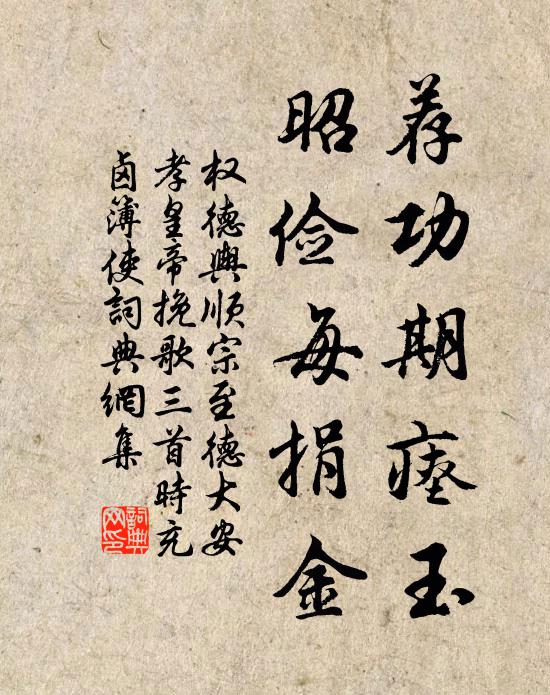 荐功期瘗玉
昭俭每捐金
权德舆顺宗至德大安
孝皇帝挽歌三首时充
卤簿使詞典網集
詞典網印